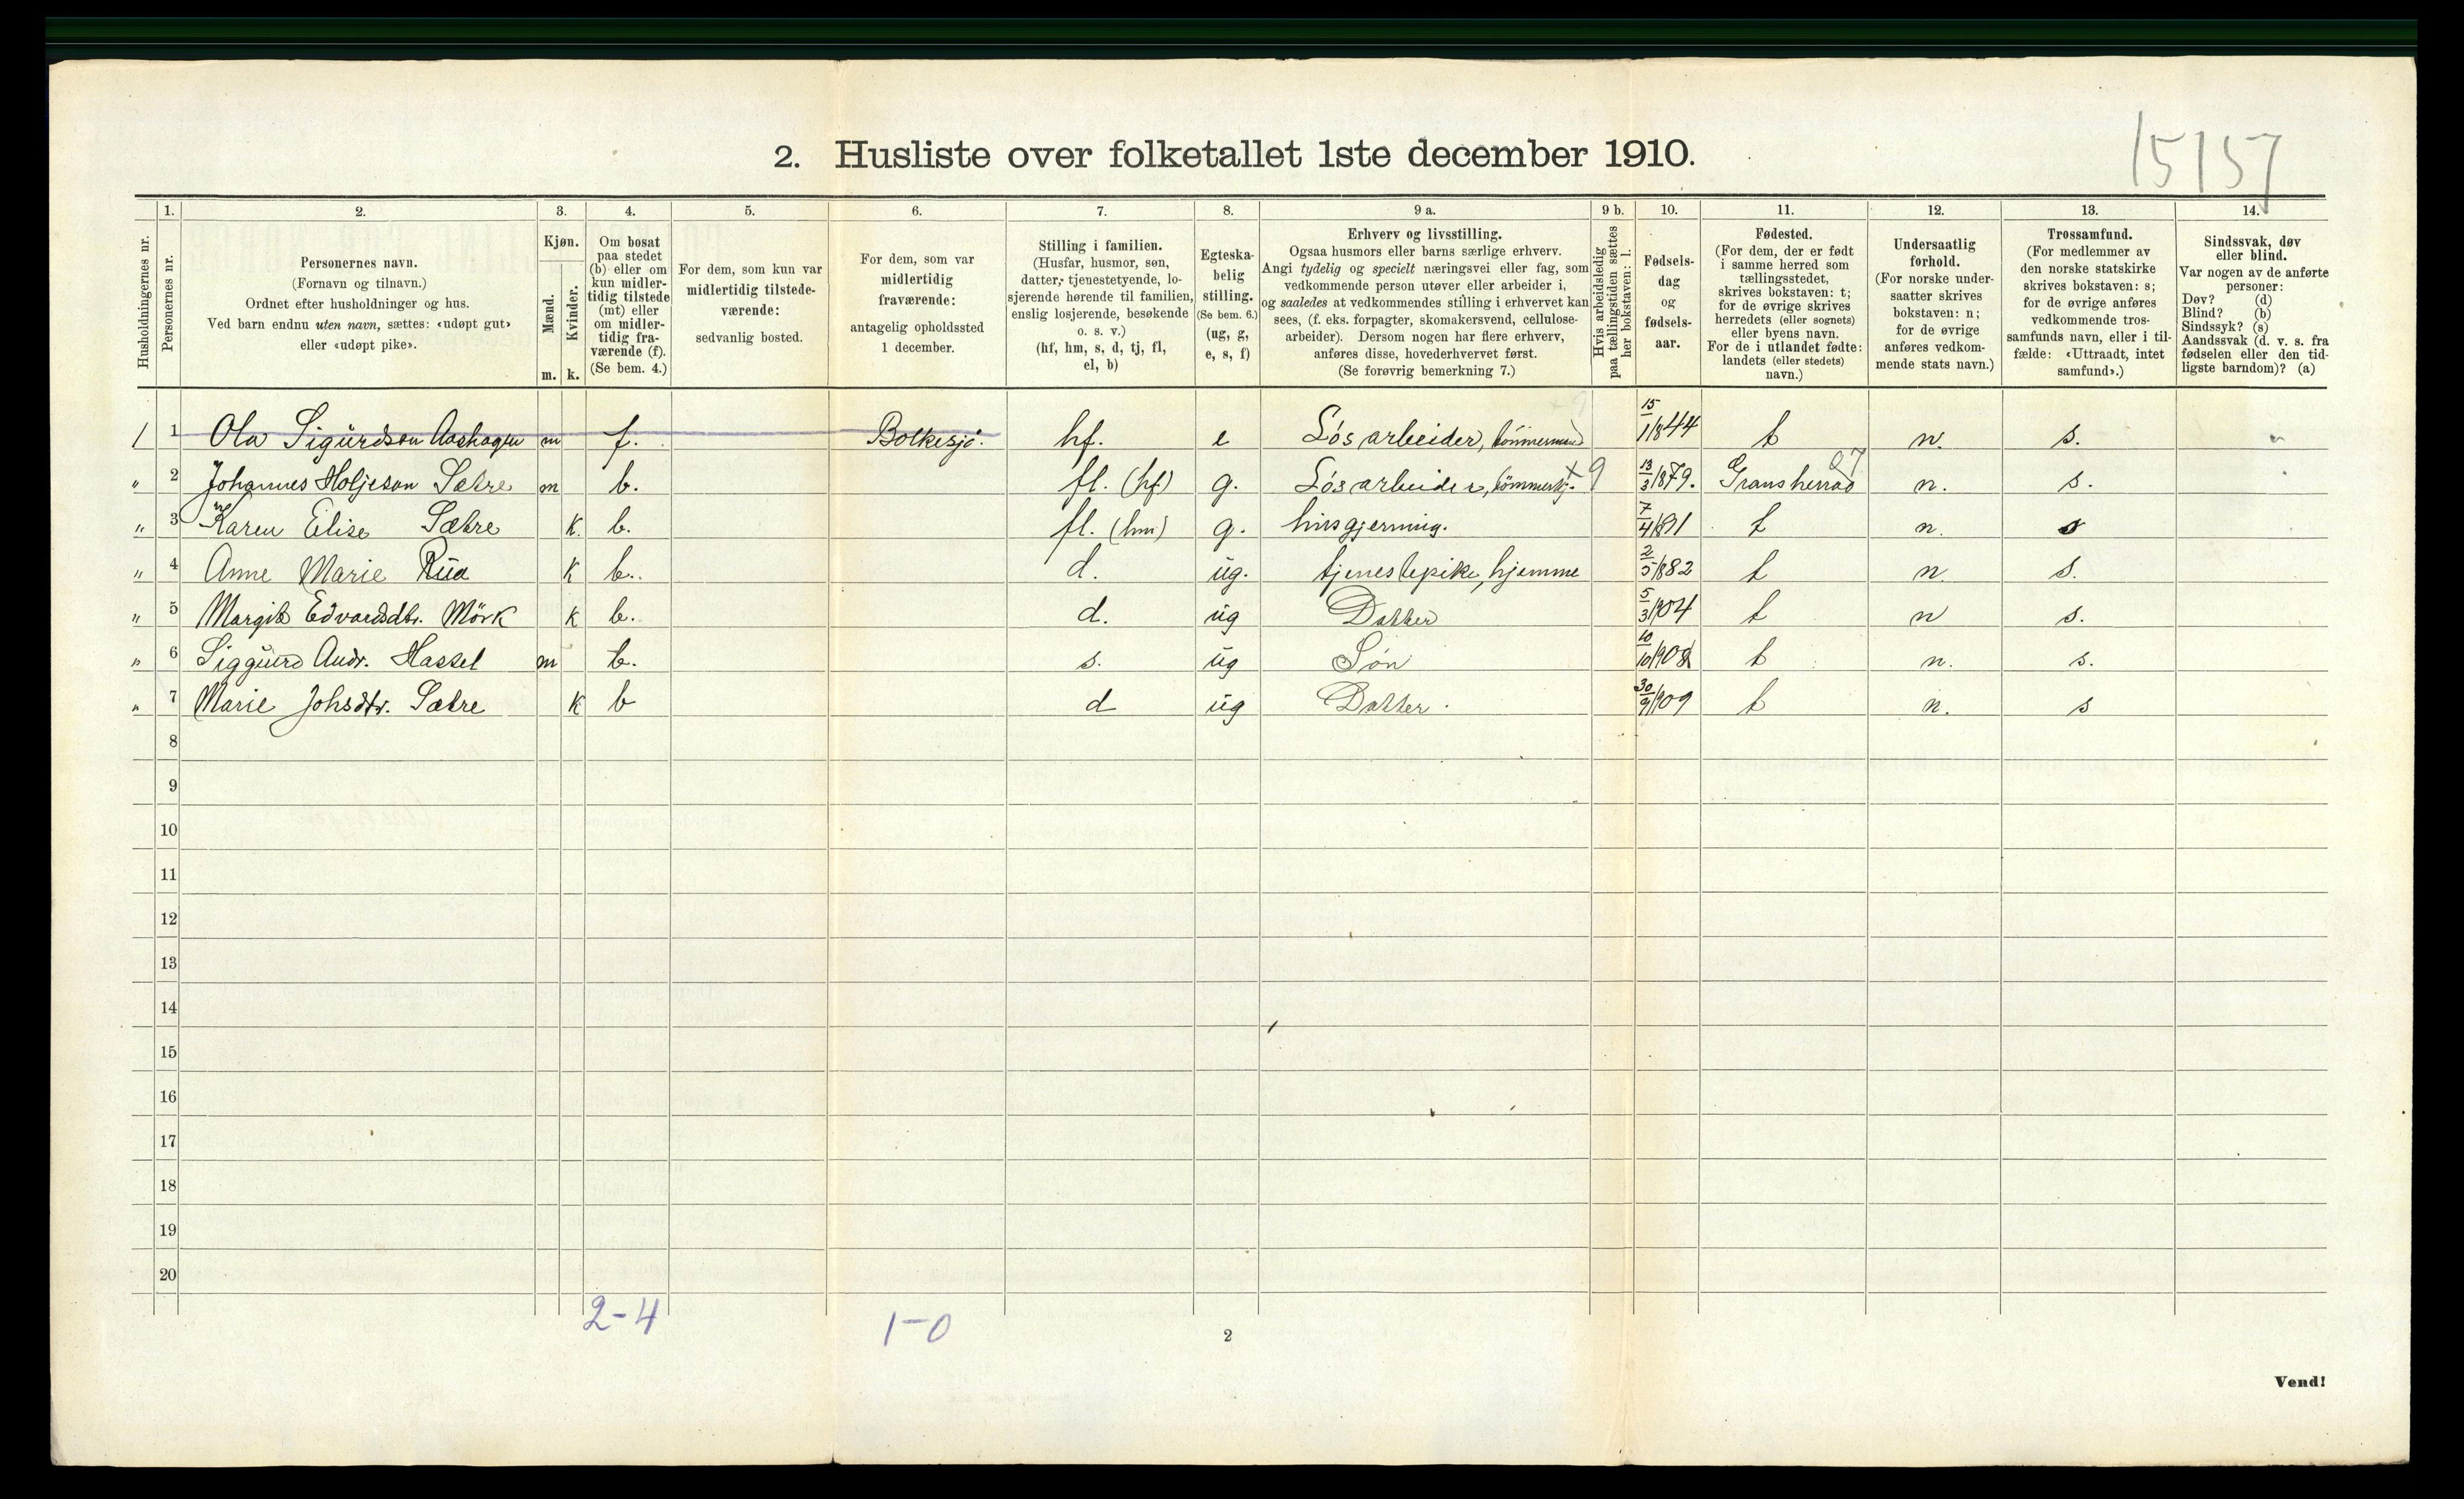 15157
2. Husliste over folketallet 1ste december 1910.
Husholdningernes nr.
1.
Personernes nr.
2.
Personernes navn.
(Fornavn og tilnavn.)
Ordnet efter husholdninger og hus.
Ved barn endnu uten navn, sættes: «udøpt gut»
eller «udøpt pike».
3.
Kjøn.
Mænd.
Kvinder.
m. k.
4.
Om bosat
paa stedet
(b) eller om
kun midler-
tidig tilstede
(mt) eller
om midler-
tidig fra-
værende (f).
(Se bem. 4.)
5.
For dem, som kun var
midlertidig tilstede-
værende:
sedvanlig bosted.
6.
For dem, som var
midlertidig
fraværende:
antagelig opholdssted
1 december.
7.
Stilling i familien.
(Husfar, husmor, søn,
datter, tjenestetyende, lo-
sjerende hørende til familien,
enslig losjerende, besøkende
o. s. v.)
(hf, hm, s, d, tj, fl,
el, b)
8.
Egteska-
belig
stilling.
(Se bem. 6.)
(ug, g,
e, s, f)
9 a.
Erhverv og livsstilling.
Ogsaa husmors eller barns særlige erhverv.
Angi tydelig og specielt næringsvei eller fag, som
vedkommende person utøver eller arbeider i,
og saaledes at vedkommendes stilling i erhvervet kan
sees, (f. eks. forpagter, skomakersvend, cellulose-
arbeider). Dersom nogen har flere erhverv,
anføres disse, hovederhvervet først.
(Se forøvrig bemerkning 7.)
9 b.
Hvis arbeidsledig
paa tællingstiden sættes
her bokstaven: l.
10.
Fødsels-
dag
og
fødsels-
aar.
11.
Fødested.
(For dem, der er født
i samme herred som
tællingsstedet,
skrives bokstaven: t;
for de øvrige skrives
herredets (eller sognets)
eller byens navn.
For de i utlandet fødte:
landets (eller stedets)
navn.)
12.
Undersaatlig
forhold.
(For norske under-
saatter skrives
bokstaven: n;
for de øvrige
anføres vedkom-
mende stats navn.)
13.
Trossamfund.
(For medlemmer av
den norske statskirke
skrives bokstaven: s;
for de øvrige anføres
vedkommende tros-
samfunds navn, eller i til-
fælde: «Uttraadt, intet
samfund».)
14.
Sindssvak, døv
eller blind.
Var nogen av de anførte
personer:
Døv? (d)
Blind? (b)
Sindssyk? (s)
Aandssvak (d. v. s. fra
fødselen eller den tid-
ligste barndom)? (a)
1 1 Ola Sigurdson Aashagen m f. Bolkesjö. hf. e Lös arbeider, tömmermand 15/1 1844 t n. s.
" 2 Johannes Holjeson Sætre m b. fl. (hf) g. Lös arbeider, tömmerhg. x 9 13/3 1879. Gransherrad 07 n. s.
" 3 Karen Elise Sætre k. b. fl. (hm) g. husgjerning. 7/4 81 t n. s
" 4 Anne Marie Rua k b. d. ug. tjenestepike, hjemme 2/5 1882 t n. s.
" 5 Margit Edvardsdtr. Mörk k b. d. ug Datter 5/3 1904 t n s.
" 6 Siggurd Andr. Hassel m b. s. ug Sön 10/10 1908 t n. s.
" 7 Marie Johsdtr. Sætre k b d ug Datter. 30/9 1909 t n. s
8
9
10
11
12
13
14
15
16
17
18
19
20
2-4
1-0
2
Vend!